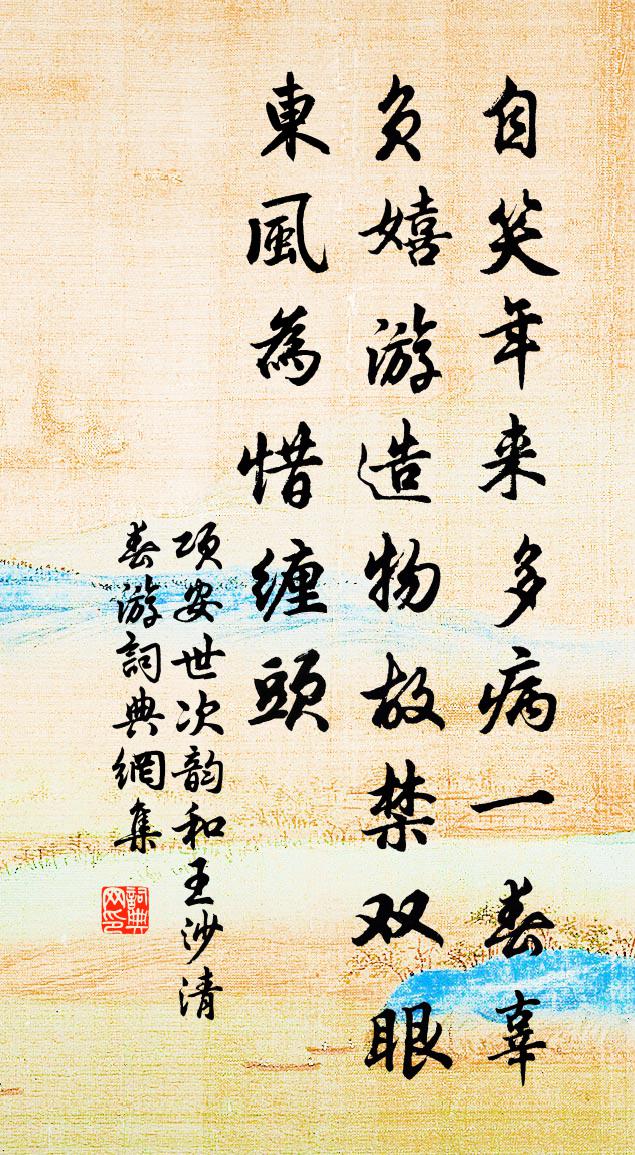 自笑年来多病一春辜
负嬉游造物故禁双眼
東風為惜纏頭
项安世次韵和王沙清
春游詞典網集
詞典网印